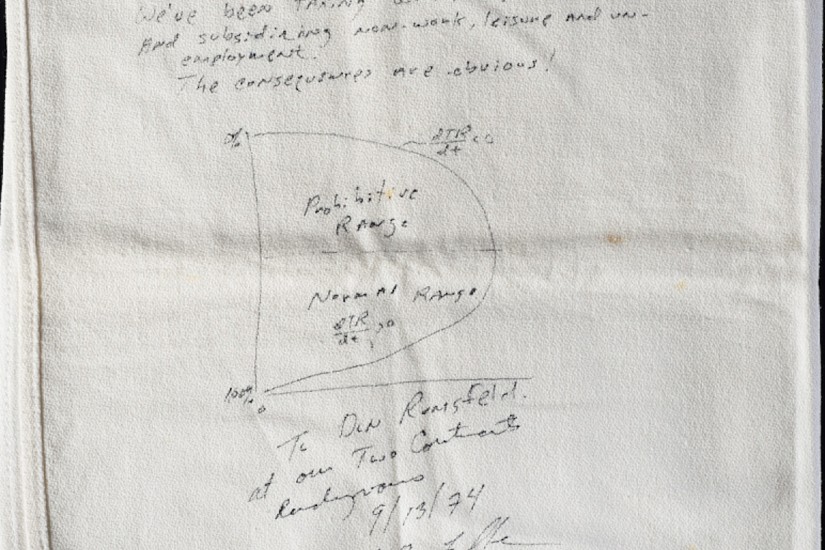 We've been
And subsidizing non-work, leisure and un-
employment.
The consequences are obvious!
%
∂TR/∂t <0
Prohibitive
Range
Normal Range
∂TR/∂t >0
100%
0
To Don Rumsfeld
at our Two Continents
Rendezvous
9/13/74